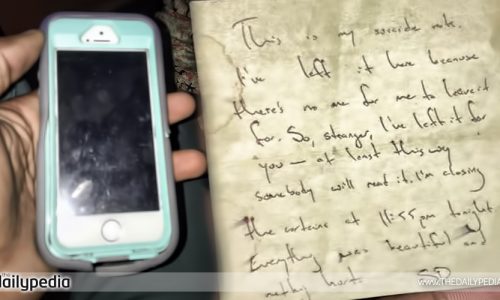 This is my suicide note.
I've left it here because
there's no one for me to leave it
for. So, stranger, I've left it for
you – at least this way
somebody will read it. I'm closing
the curtains at 11:55pm tonight
Everything was beautiful and
nothing hurt. SD
THE
dailypedia
WWW.THEDAILYPEDI